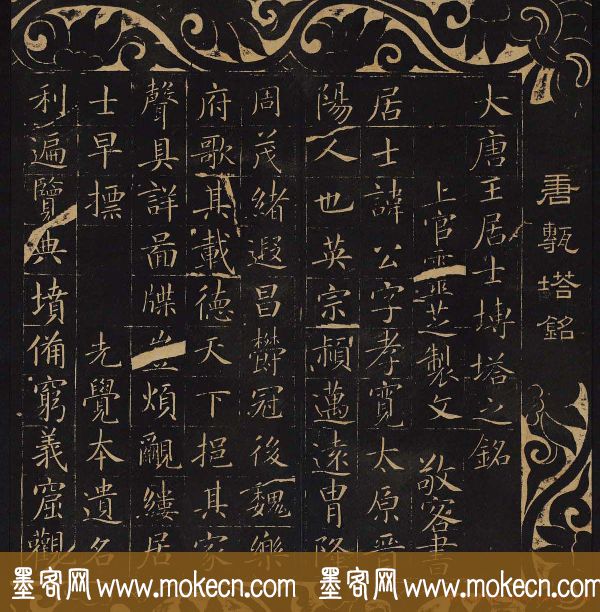 唐塼塔銘
大唐王居士塼塔之銘
上官靈芝製文 敬客書
居士諱公字孝寛太原晉
陽人也英宗穎邁遠胄隆
周茂緒遐昌欝冠後魏樂
府歌其載德天下挹其家
聲具詳啚牒豈煩覼縷居
士早摽 先覺本遺名
利遍覽典墳備窮義窟觀
墨客网 www.mokecn.com 墨客网 www.mokecn.com